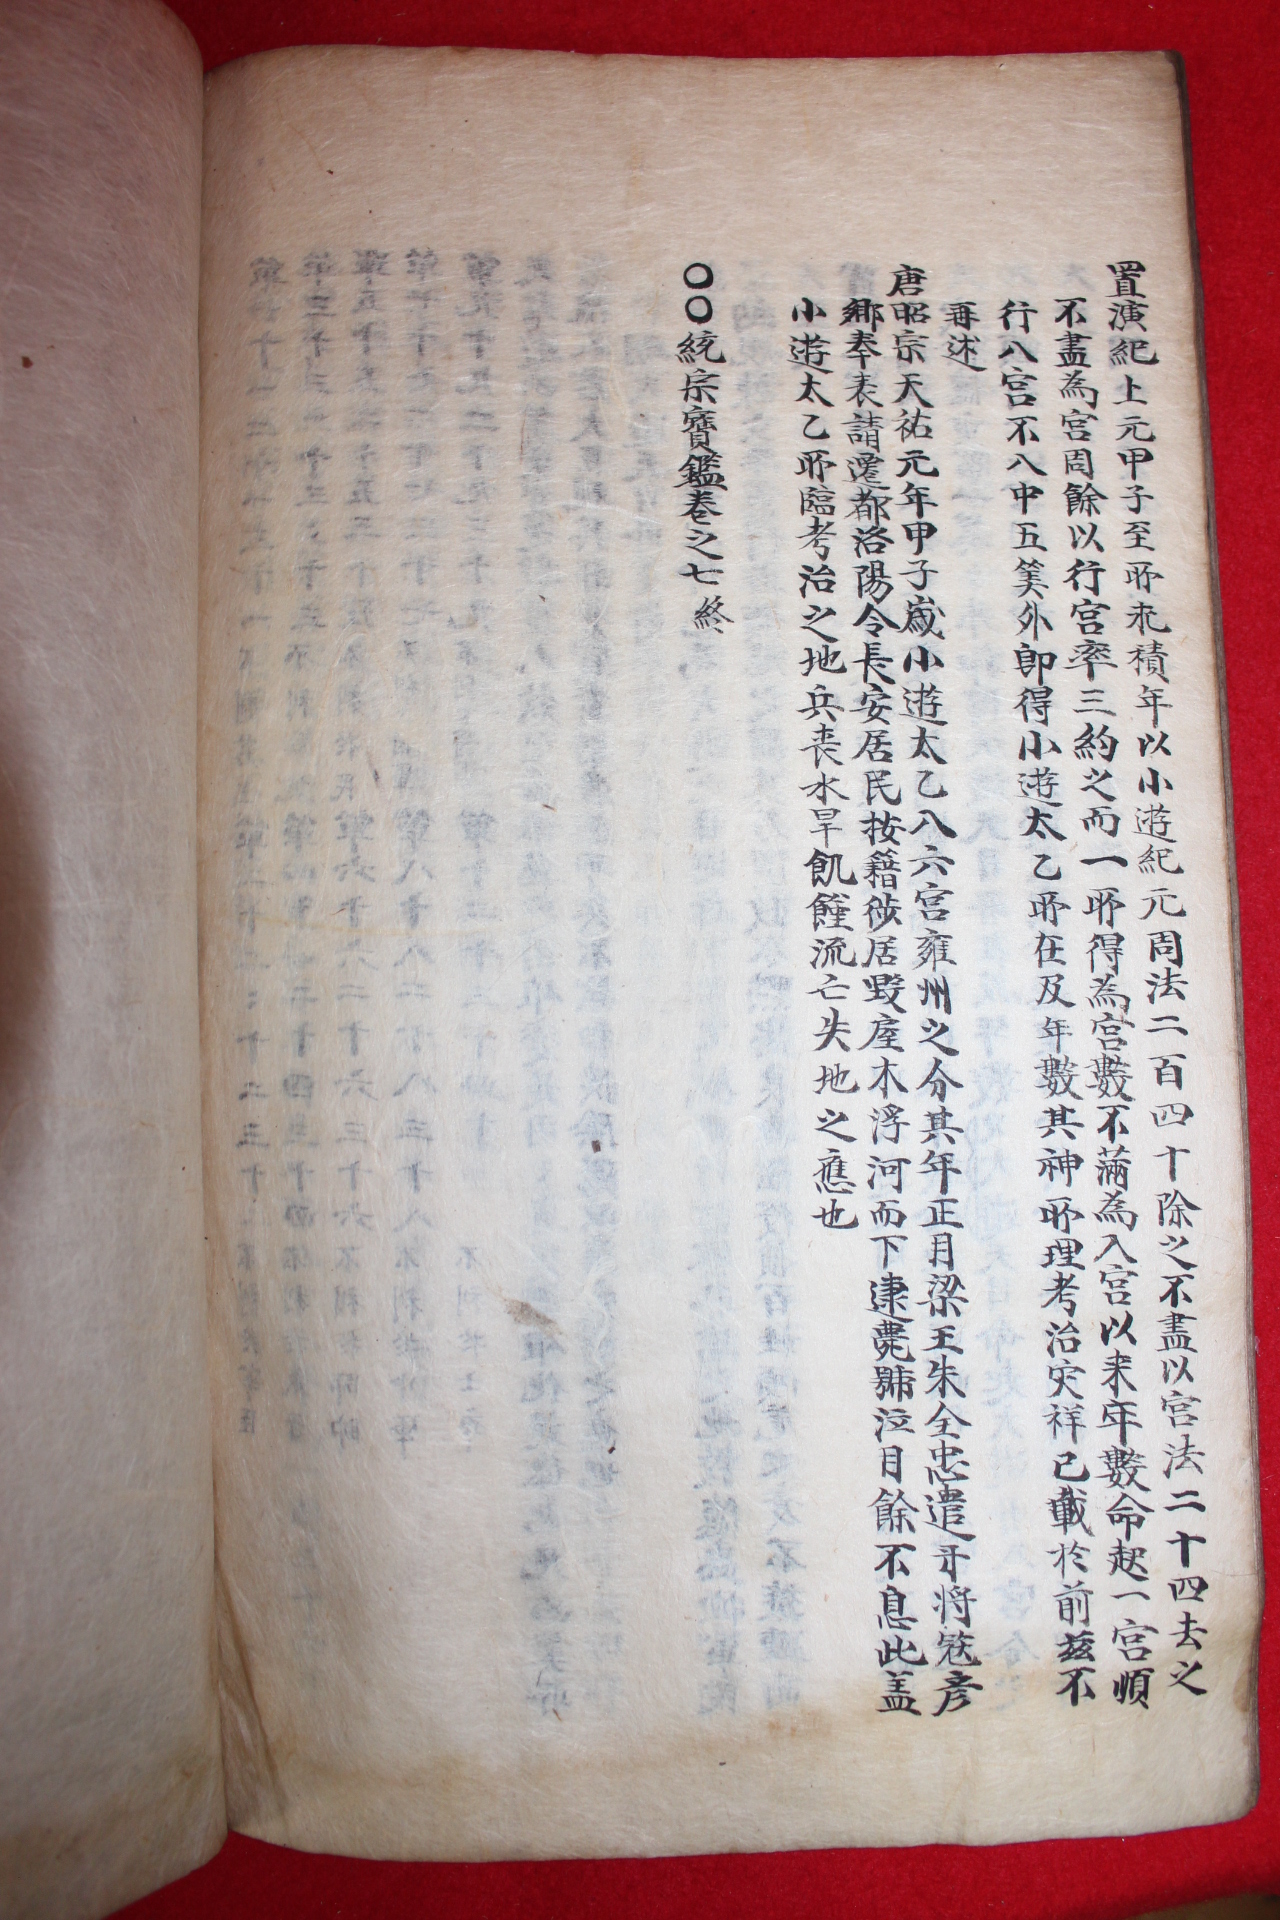 置演紀上元甲子至所求積年以小遊紀元周法二百四十除之不盡以宮法二十四去之
不盡為宮周餘以行宮率三約之而一所得為宮數不滿為入宮以来年數命起一宮順
行八宮不入中五筭外即得小遊太乙所在及年數其神所理考治灾祥已載於前茲不
再述
唐昭宗天祐元年甲子歲小遊太乙入六宮雍州之分其年正月梁王朱全忠遣牙將冦彦
郷奉表請遷都洛陽令長安居民按籍徙居毀屋木浮河而下連甍號泣月餘不息此盖
小遊太乙所臨考治之地兵丧水旱飢饉流亡失地之應也
〇〇統宗寳鑑巻之七 終